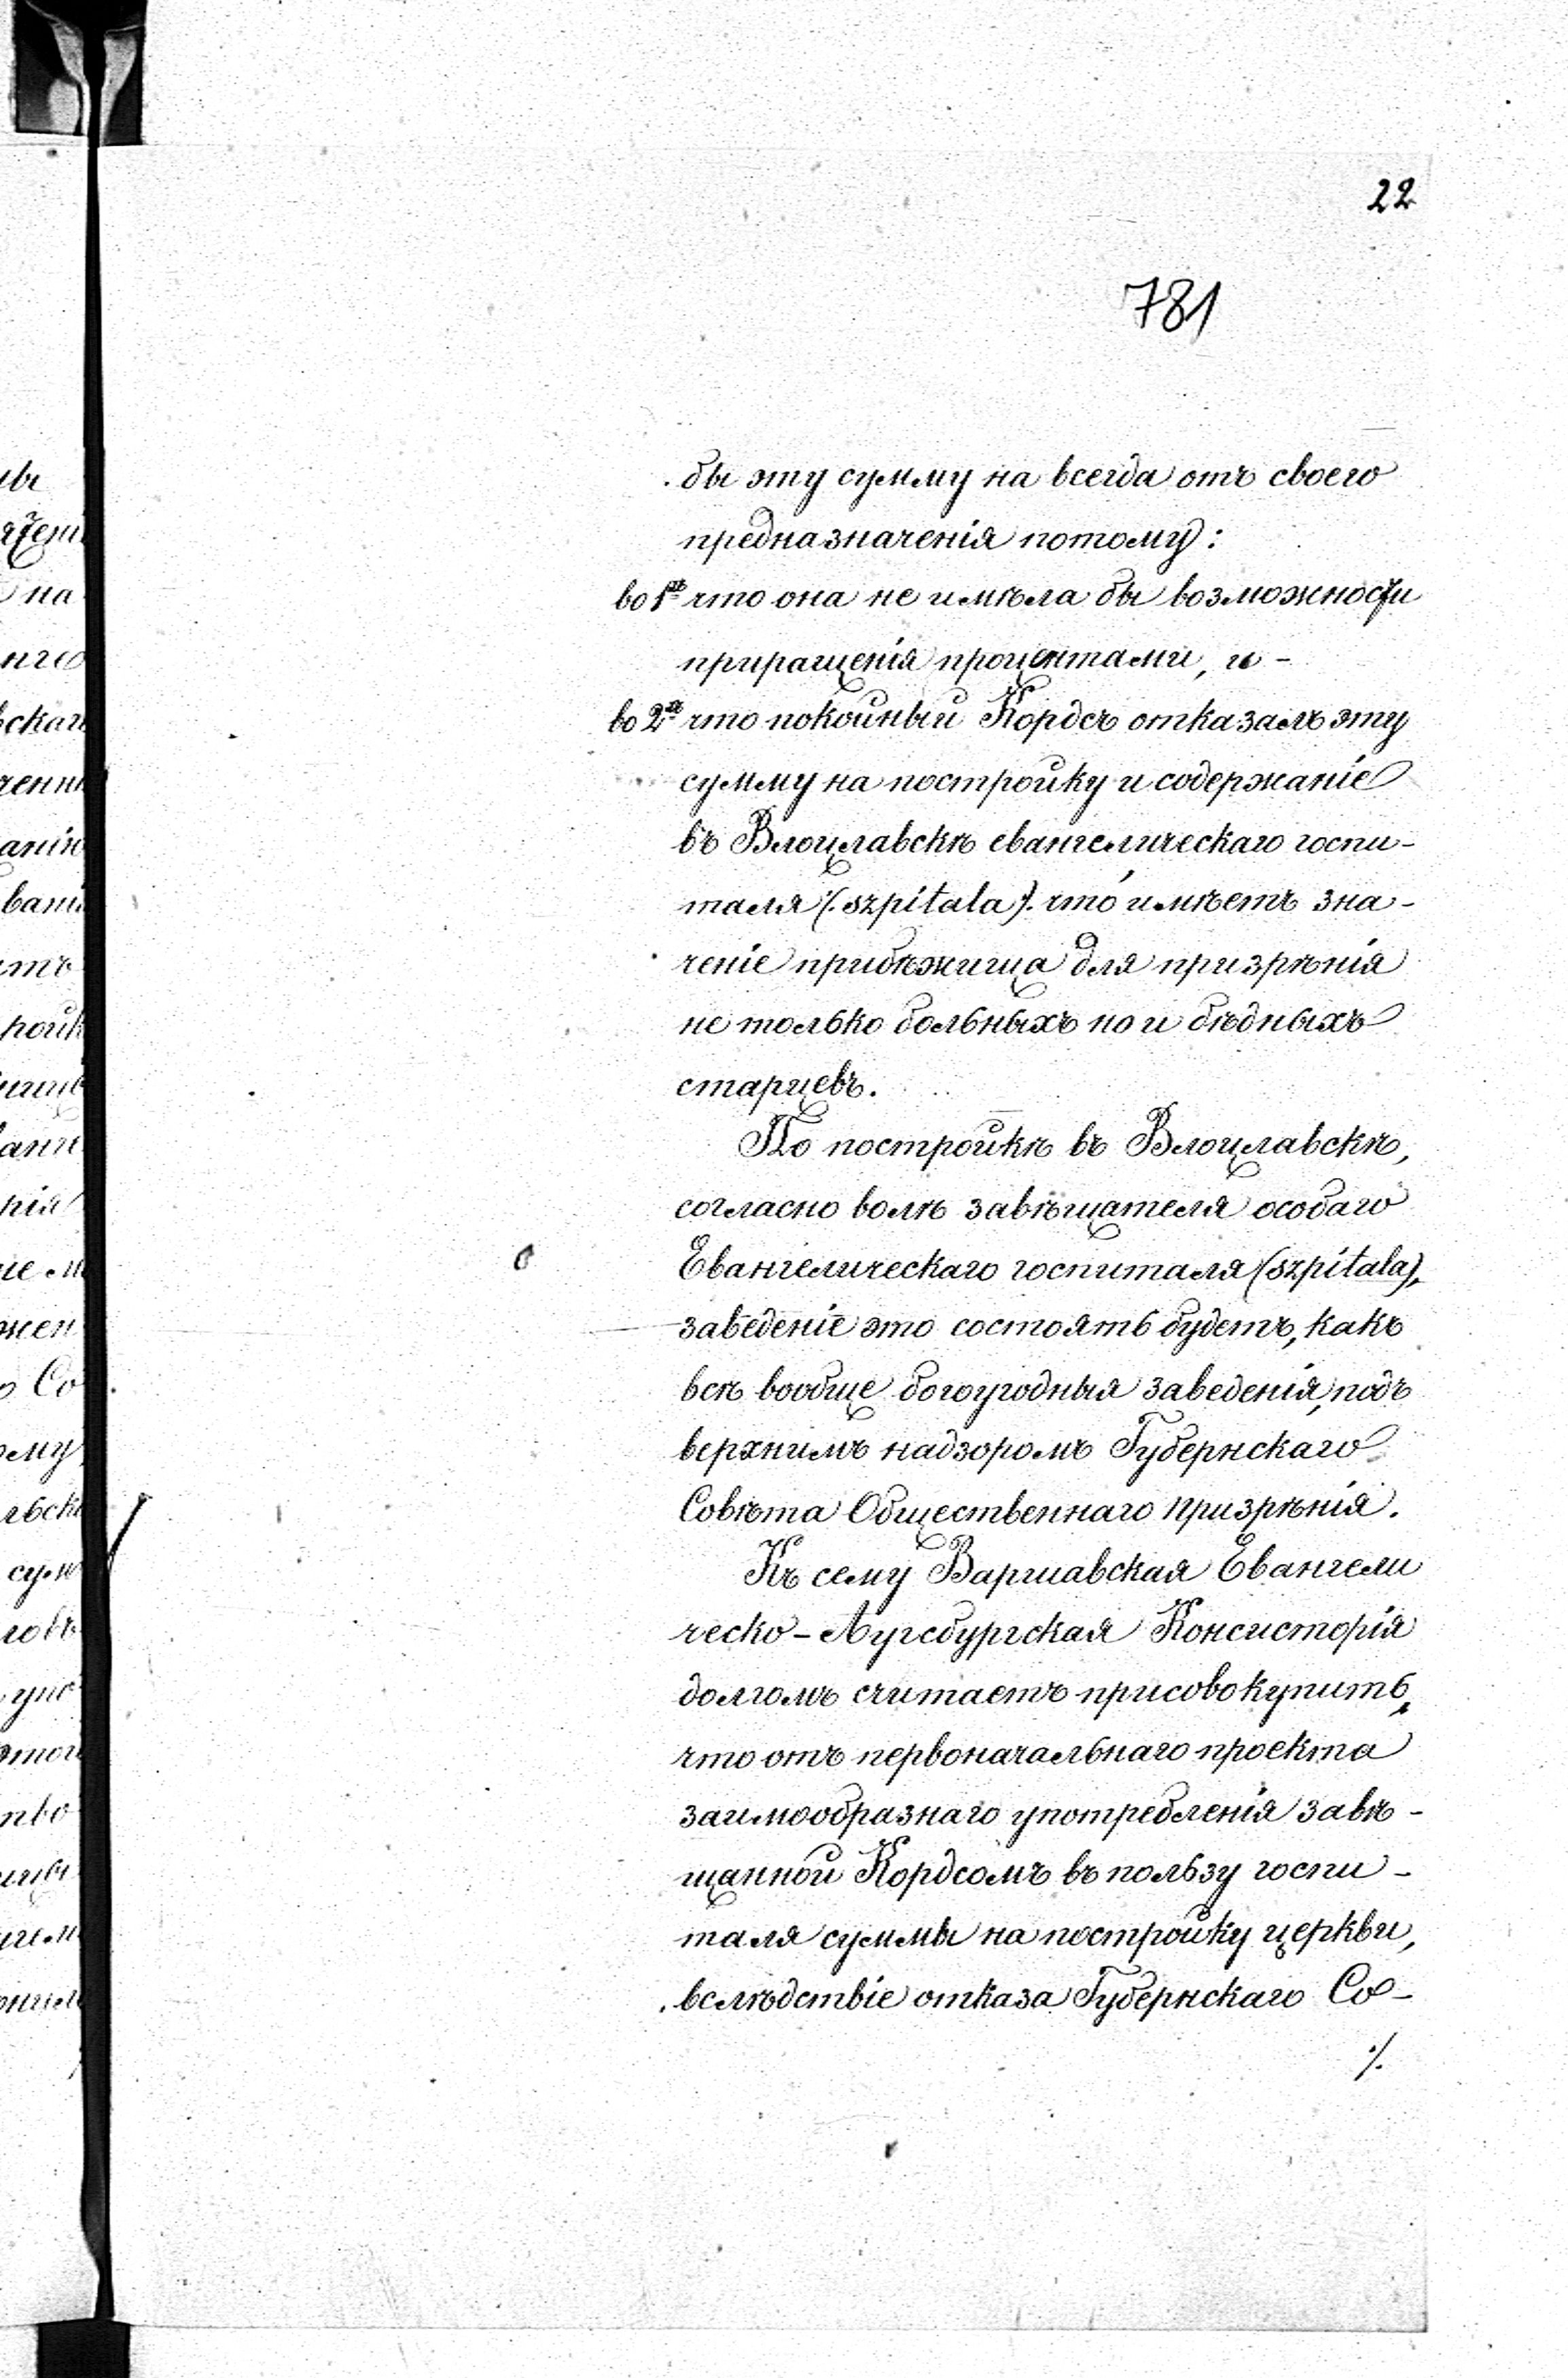 22
781
бы эту сумму на всегда отъ своего
предназначенія потому:
во 1хъ что она не имѣла бы возможности
приращенія процентами, и -
во 2хъ что покойный Кордсъ отказалъ эту
сумму на постройку и содержаніе
въ Влоцлавскѣ евангелическаго госпи-
таля (:szpitala:) что́ имѣетъ зна-
ченіе прибѣжища для призрѣнія
не только больныхъ но и бѣдныхъ
старцевъ.
По постройкѣ въ Влоцлавскѣ,
согласно волѣ завѣщателя особаго
Евангелическаго госпиталя (szpitala),
заведеніе это состоять будетъ, какъ
всѣ вообще богоугодныя заведенія, подъ
верхнимъ надзоромъ Губернскаго
Совѣта Общественнаго призрѣнія.
Къ сему Варшавская Евангели
ческо-Аугсбургская Консисторія
долгомъ считаетъ присовокупить,
что отъ первоначальнаго проекта
заимообразнаго употребленія завѣ-
щанной Кордсомъ въ пользу госпи-
таля суммы на постройку церкви,
вслѣдствіе отказа Губернскаго Со-
./.